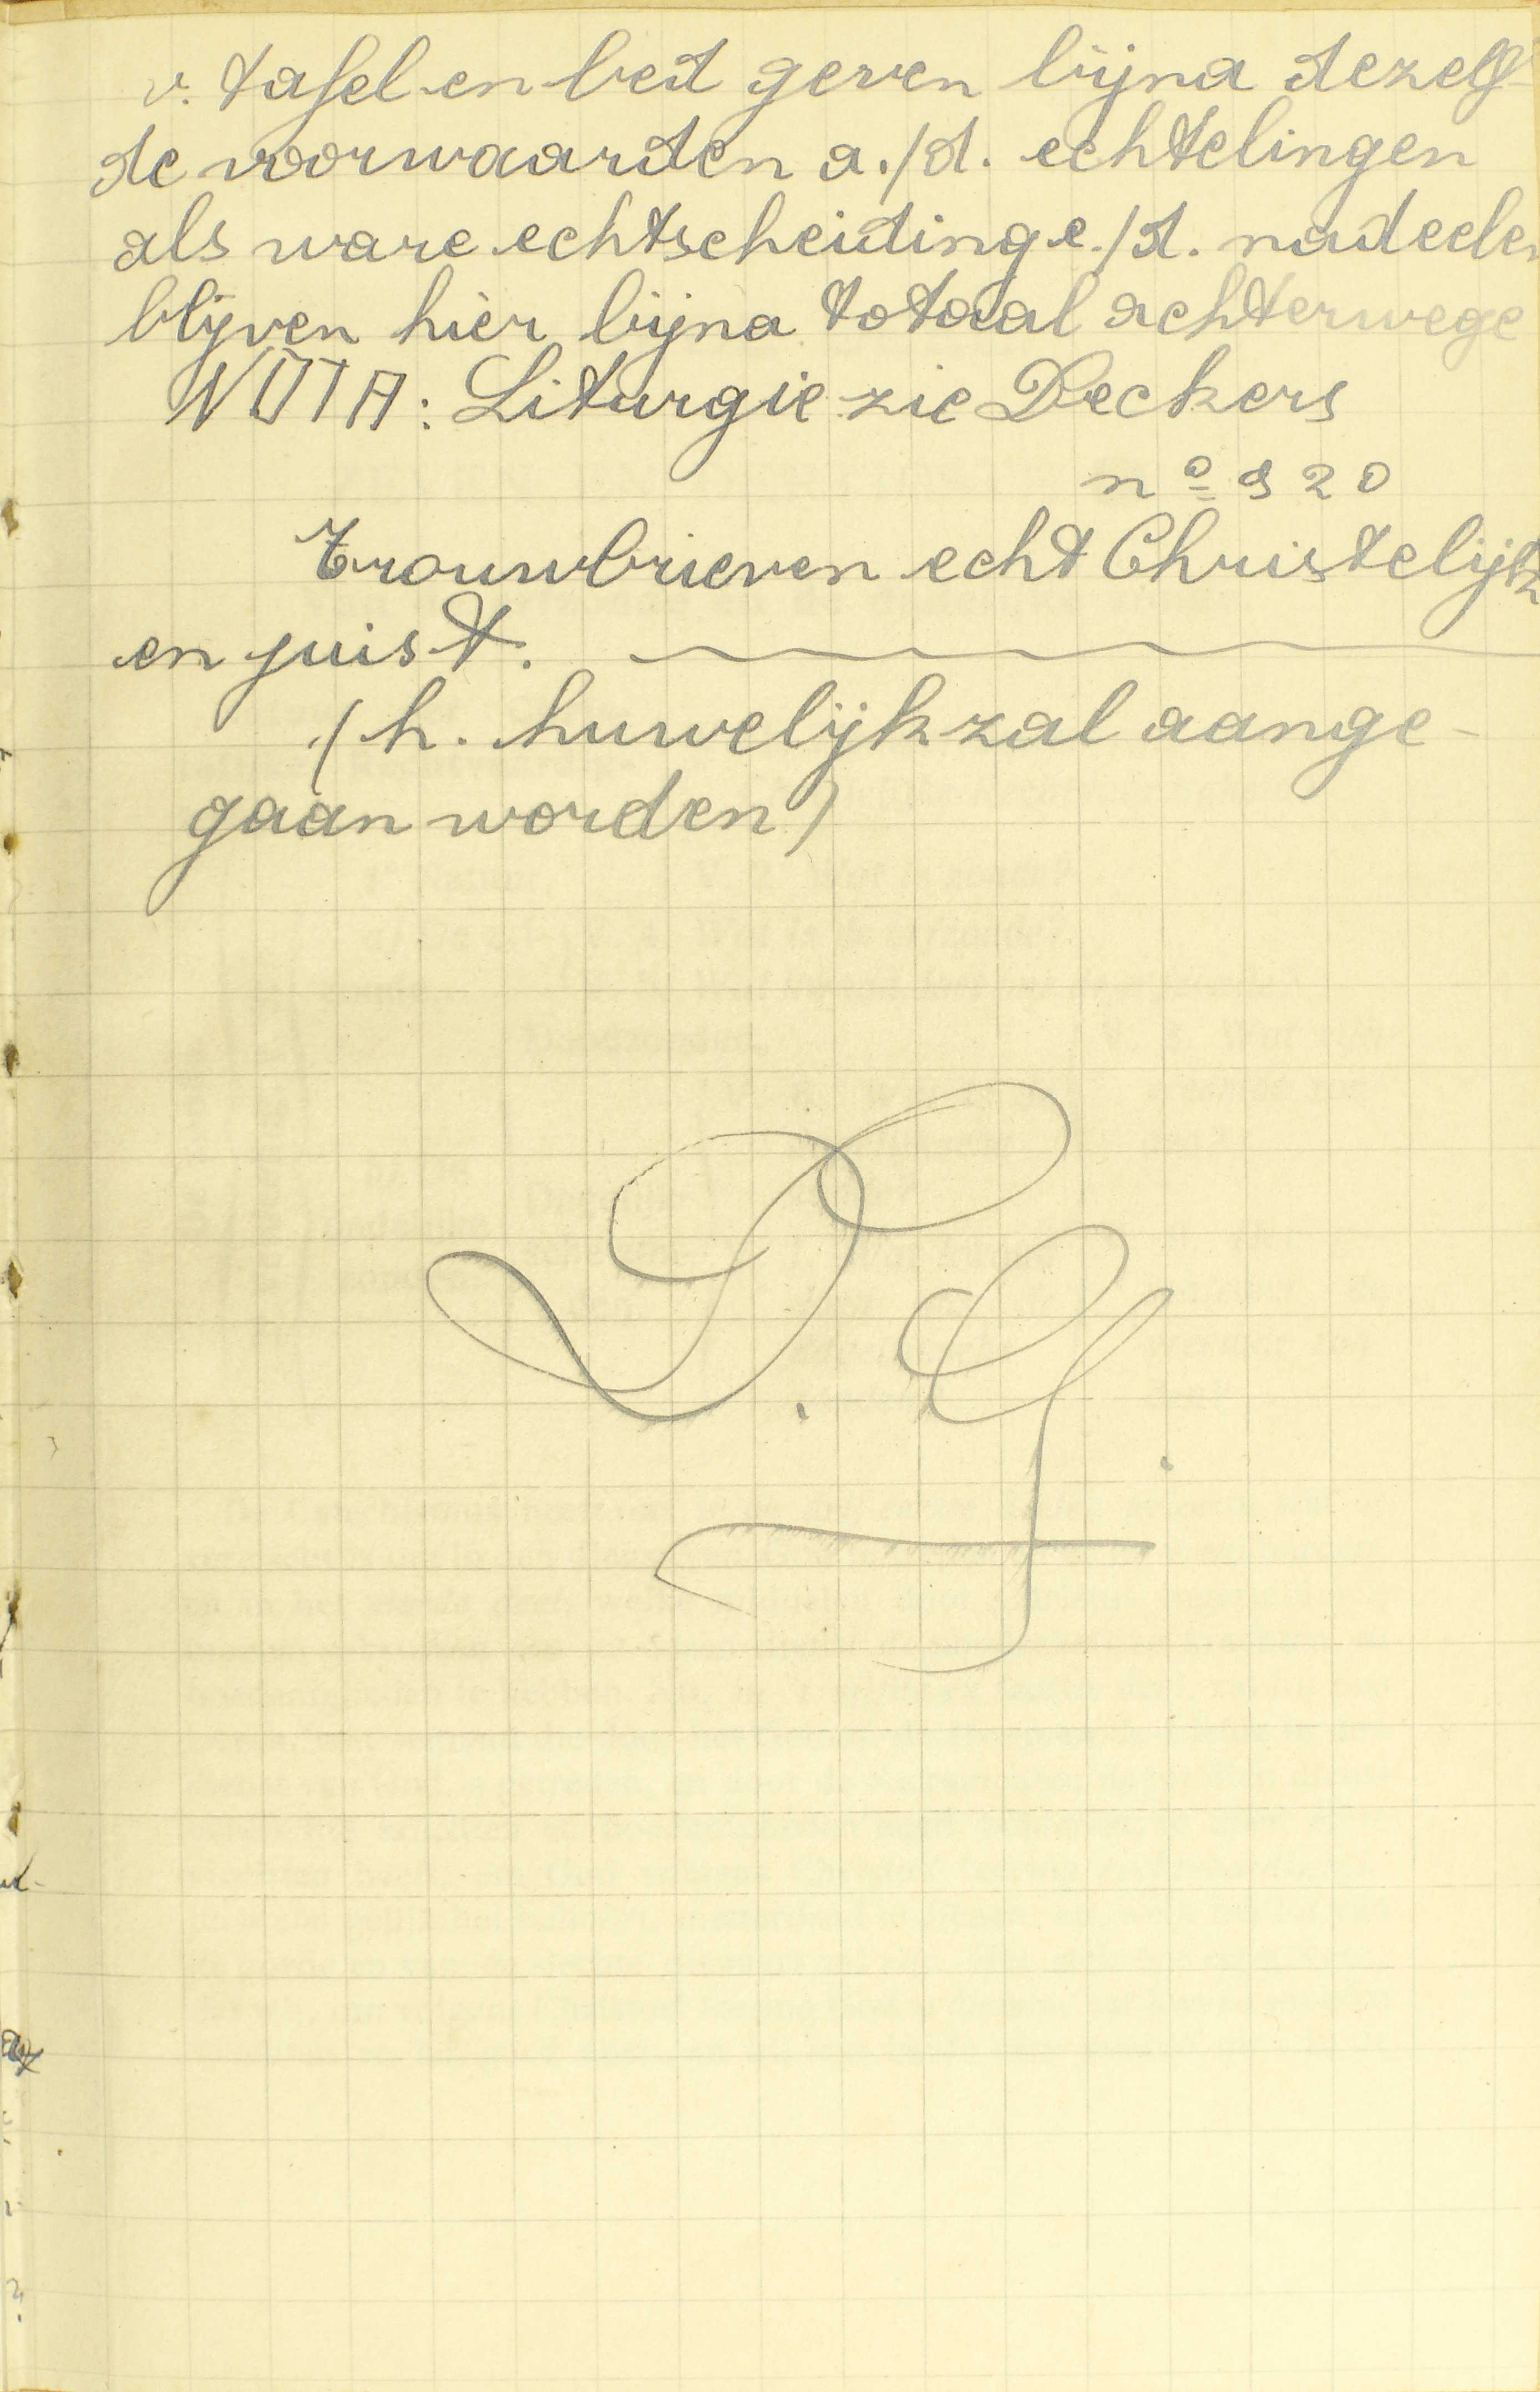 v. tafel en bed geven bijna dezelf-
de voorwaarden a./d. echtelingen
als ware echtscheiding e./d. nadeelen
blijven hier bijna totaal achterwege
NOTA: Liturgie zie Deckers
nº 920
Trouwbrieven echt Christelijk
en juist.
(h. huwelijk zal aange-
gaan worden)
D.G.